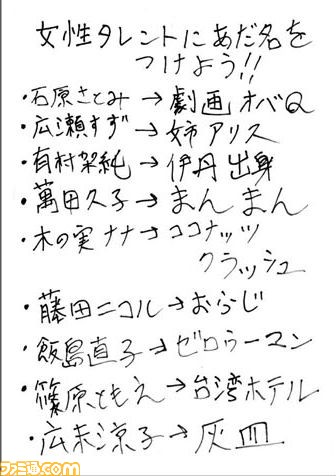 女性タレントにあだ名を
つけよう!!
・石原さとみ→劇画オバQ
・広瀬すず→姉アリス
・有村架純→伊丹出身
・萬田久子→まんまん
・木の実ナナ→ココナッツ
クラッシュ
・藤田ニコル→おらじ
・飯島直子→ゼロラーマン
・篠原ともえ→台湾ホテル
・広末涼子→灰皿
ファミ通.com